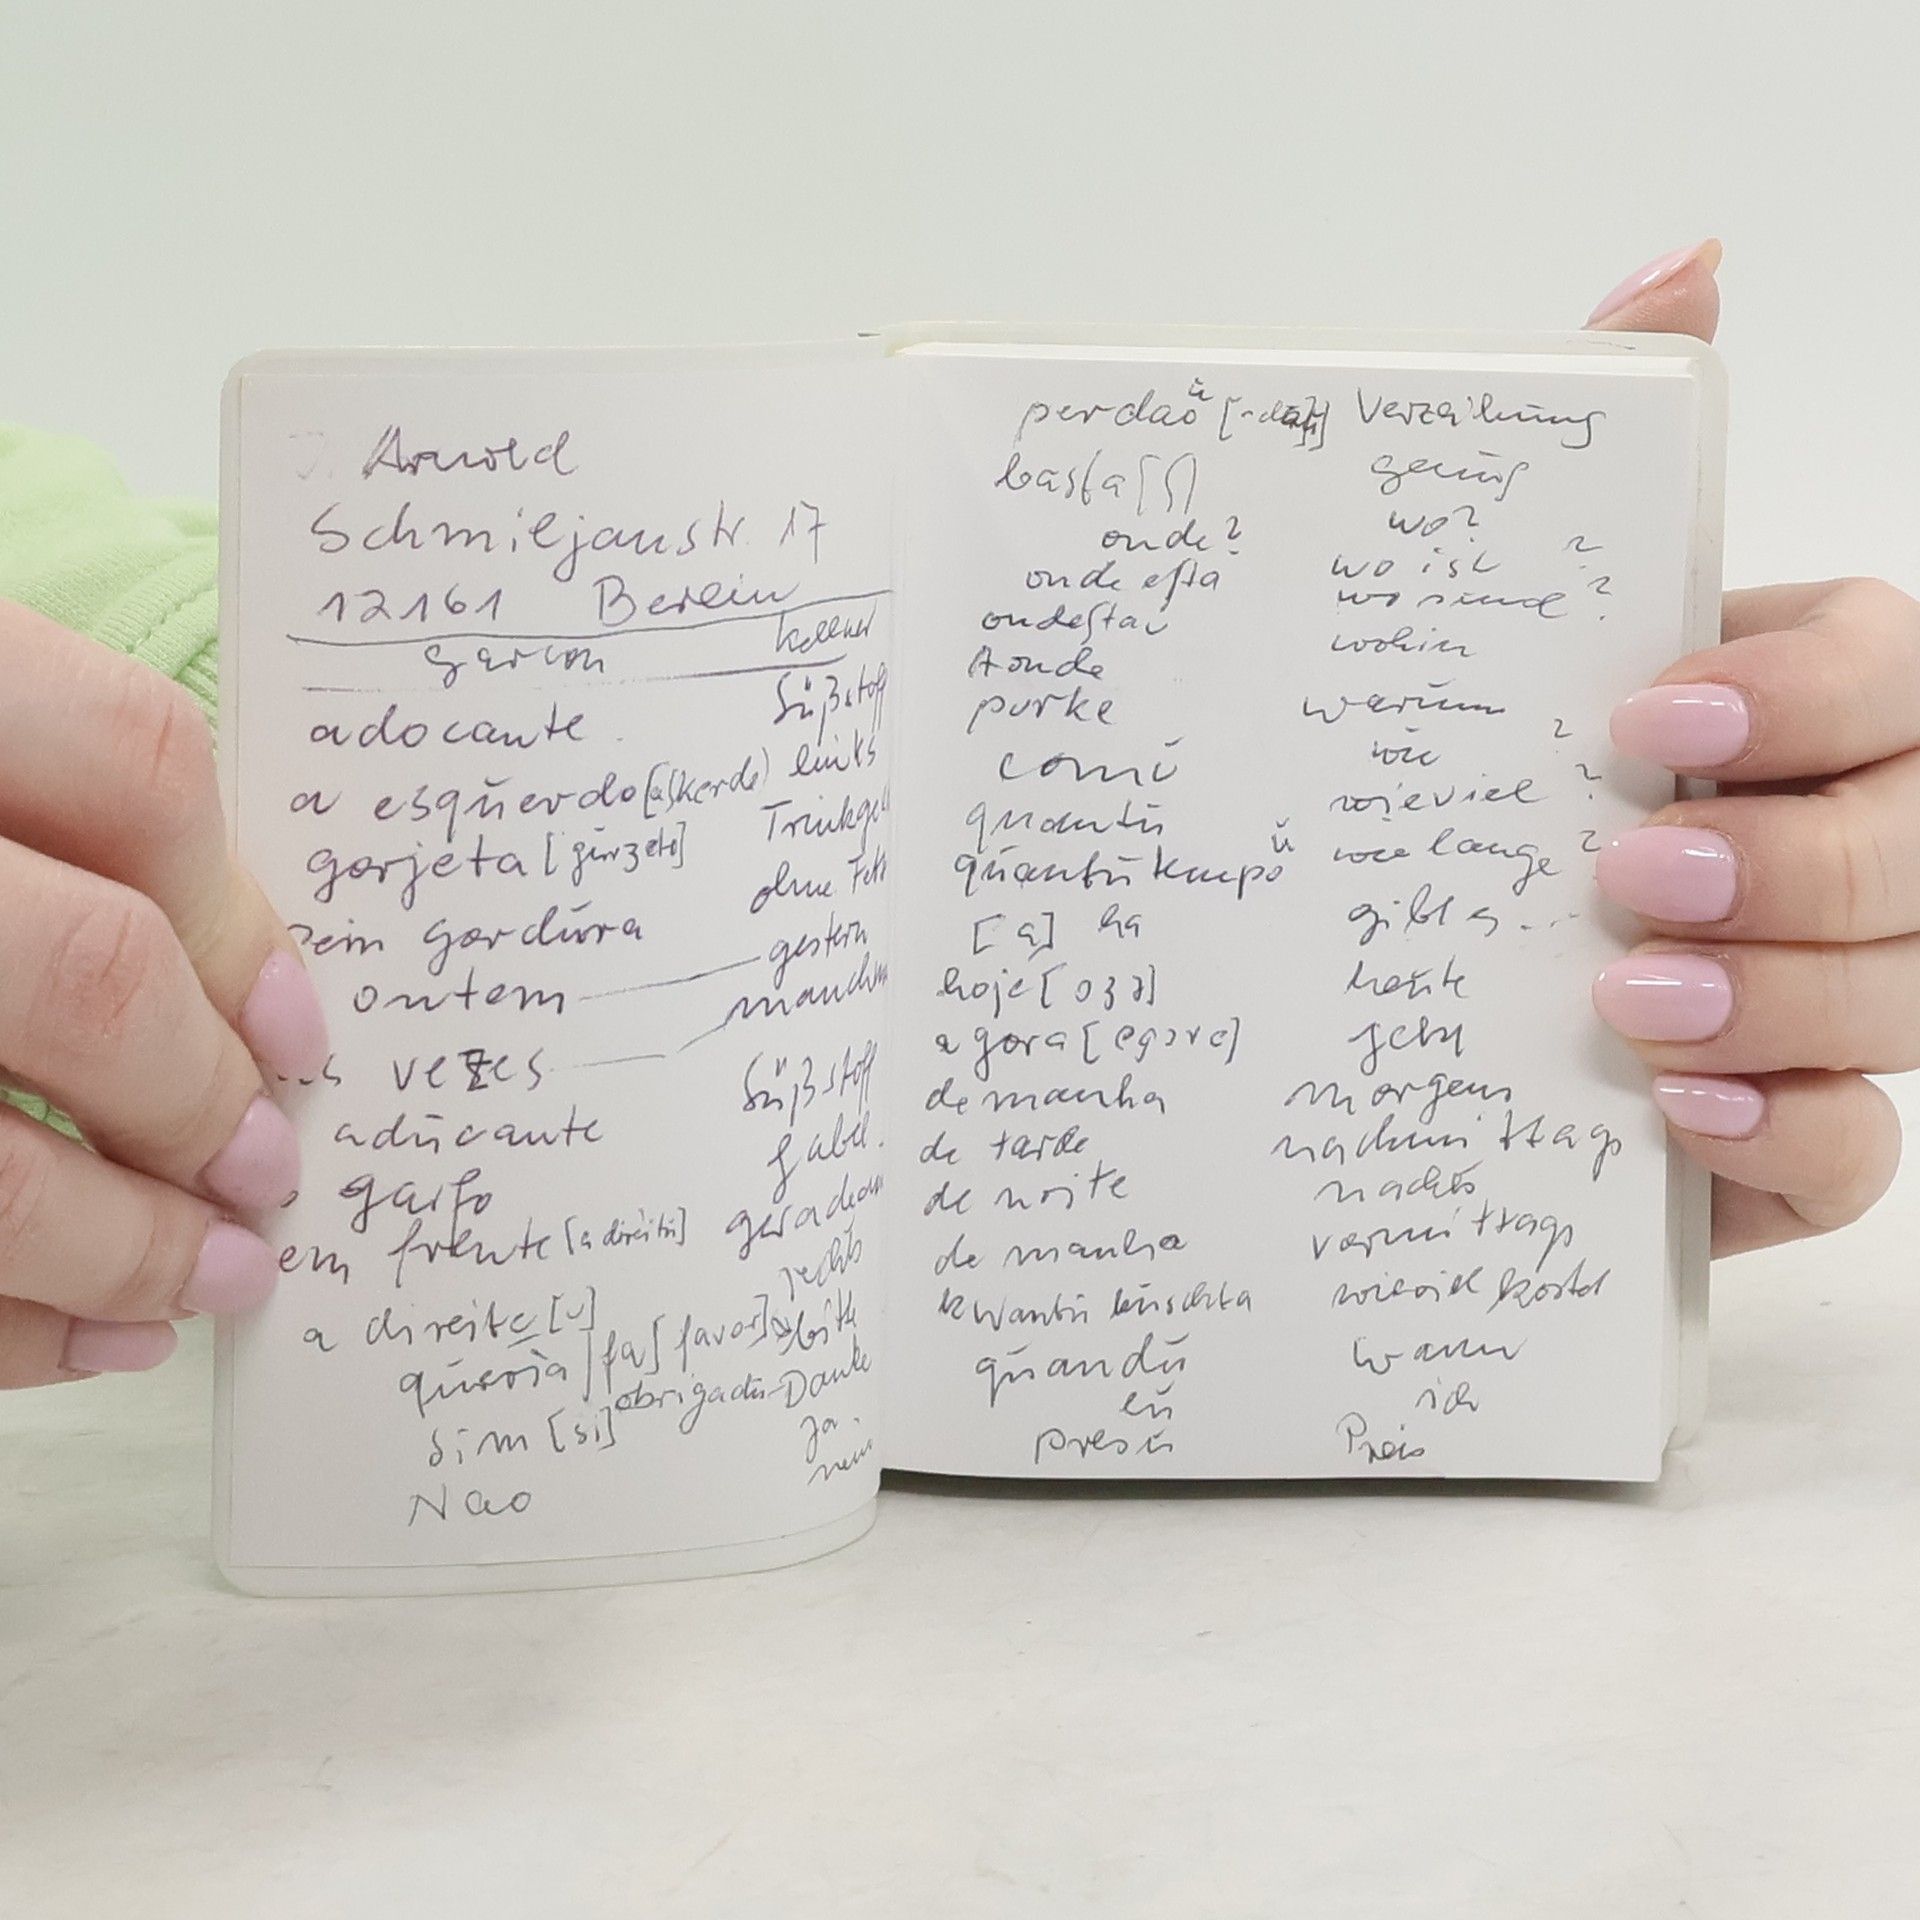 J. Arnold
Schmiljanstr. 17
12161 Berlin
garcon Kellner
adocante Süßstoff
a esquerdo [aſkerde] links
gorjeta [gürzete] Trinkgel
sem gordura ohne Fett
ontem gestern
vezes manchm
aducante Süßstoff
o garfo Gabel
em frente [a direitu] geradeau
a direite [u] rechts
queria [fa] favor] bitte
obrigadu - Danke
sim [si] Ja
Nao nein
perdao Verzeihung
basta [ʃ] genug
onde? wo?
onde eſta wo ist ?
ondeſtau wo sind ?
Aonde wohin
purke warum
comu wie ?
quantu wieviel ?
quantu tempo wie lange ?
[a] ha gibt es ...
hoje [oʒə] heute
agora [egɔrɐ] jetzt
de manha morgens
de tarde nachmittags
de noite nachts
de manha vormittags
kwantu kuschta wieviel kostet
quandu wann
eu ich
presu Preis